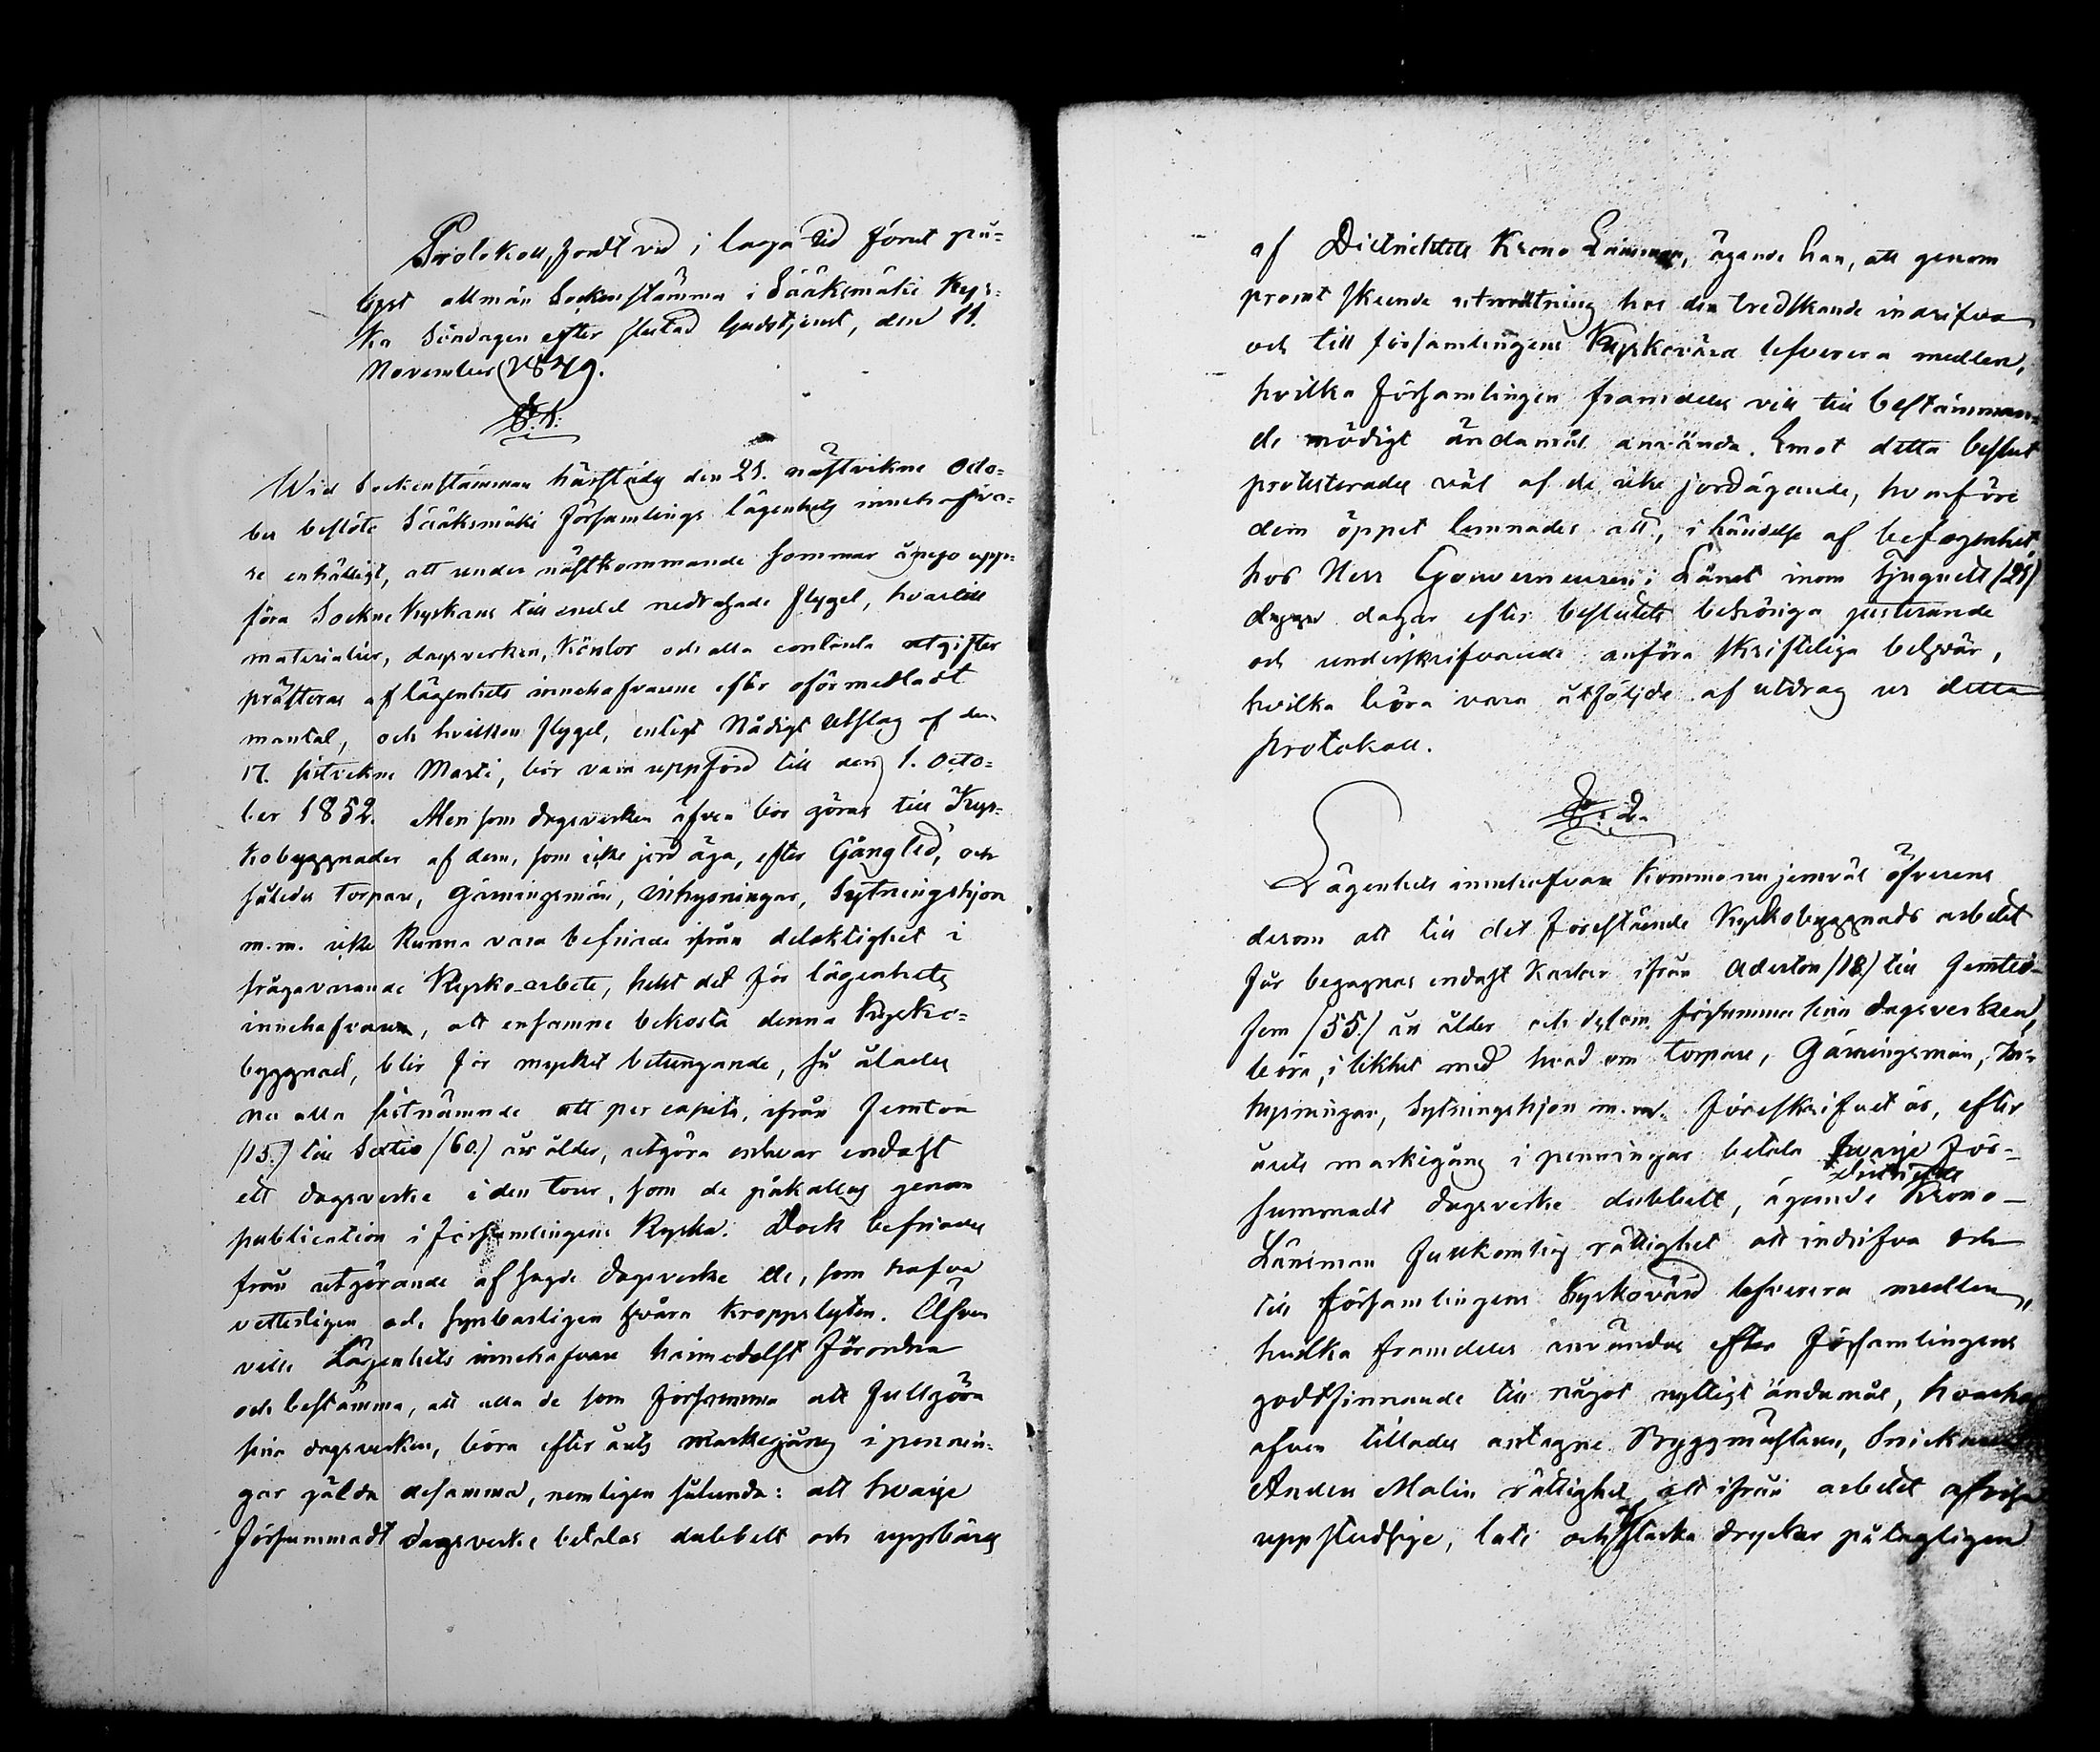 Protokoll, fördt vid i laga tid förut pu-
blict allmän Sockenstämma i Sääksmäki Kyr-
ka Söndagen efter slutad Gudstjenst, den 11.
November 1849.
§. 1.
Wid Sockenstämman härstädes den 21. nästvikne Octo-
ber beslöto Sääksmäki Församlings lägenhets innehafva-
re enhälligt, att under nästkommande sommar ånyo upp-
föra Sockne Kyrkans till endel nedrasade flygel, hvartill
materialier, dagsverken, körslor och alla contanta utgifter
præsteras af lägenhets innehafvarene efter oförmedladt
mantal, och hvilken flygel, enligt Nådigt Utslag af den
17. sistvikne Martii, bör vara uppförd till den 1. Octo-
ber 1852. Men som dagsverken äfven bör göras till Kyr-
kobyggnader af dem, som icke jord äga, efter Gångled, och
således torpare, Gärningsmän, Inhysningar, Sytningshjon
m.m. icke kunna vara befriade ifrån delaktighet i
frågavarande Kyrko-arbete, helst det för lägenhets
innehafvare, att ensamne bekosta denna Kyrko-
byggnad, blir för mycket betungande, så ålades
nu alla sistnämnde att per capita, ifrån femton
/15./ till Sextio /60./ års ålder, utgöra enhvar endast
ett dagsverke i den tour, som de påkallas genom
publication i församlingens Kyrka. Dock befriades
från utgörande af sagde dagsverke de, som hafva
vetterligen och synbarligen svåra kroppslyten. Äfven
ville Lägenhets innehafvare härmedelst förordna
och bestämma, att alla de som försumma att fullgöra
sina dagsverken, böra efter årets markegång i pennin-
gar gälda desamma, nemligen sålunda: att hvarje
försummadt dagsverke betalas dubbelt och uppbäres
af Districtets Krono Länsman, ägande han, att genom
promt skeende utmätning hos den tredskande indrifva
och till församlingens Kyrkovärd lefverera medlen,
hvilka församlingen framdeles vill till bestämman-
de nödigt ändamål använda. Emot detta beslut
protesterades väl af de icke jordägande, hvarföre
dem öppet lemnades att, i händelse af befogenhet,
hos Herr Gouverneuren i Länet inom tjuguett /21/
dagar efter beslutets behöriga justerande
och underskrifvande anföra skriftliga besvär,
hvilka böra vara åtföljde af utdrag ur detta
protokoll.
§. 2.
Lägenhets innehafvare kommo nu jemväl öfverens
derom att till det förestående Kyrkobyggnads arbetet
får begagnas endast Karlar ifrån Aderton /18/ till femtio-
fem /55./ års ålder och de som försumma sina dagsverken,
böra, i likhet med hvad om torpare, Gärningsmän, In-
hysningar, Sytningshjon m.m. föreskrifvet är, efter
årets markegång i penningar betala hvarje för-
Districtets
summadt dagsverke dubbelt, ägande Krono-
Länsman fullkomlig rättighet att indrifva och
till församlingens Kyrkovärd lefverera medlen,
hvilka framdeles användas efter församlingens
godtfinnande till något nyttigt ändamål, hvarhos
äfven tillades antagne Byggmästaren, Snickaren
Anders Malin rättighet att ifrån arbetet afvisa
uppstudsige, lati och af starka drycker påtagligen